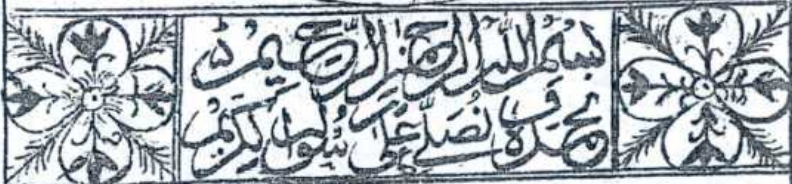 بسم الله الرحمن الرحيم
نحمده و نصلے علیٰ رسوله الکریم